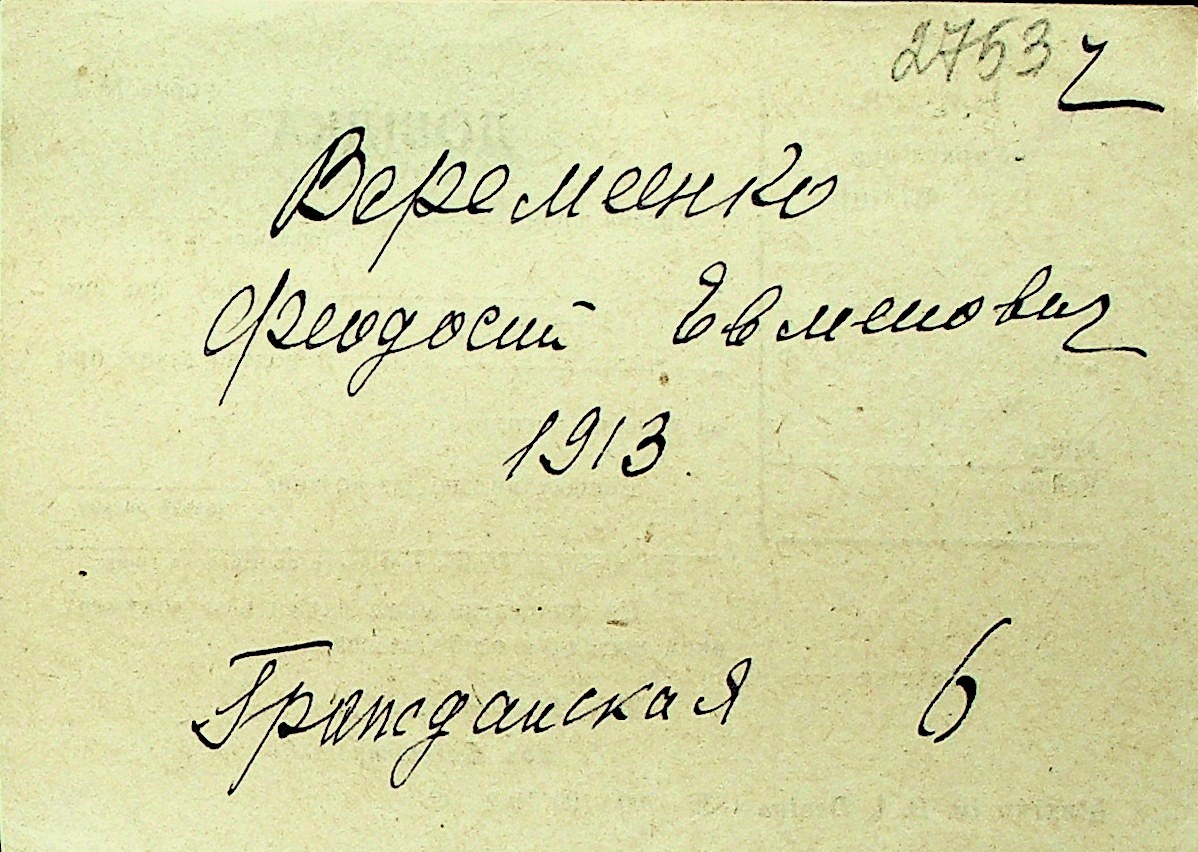 2753 ч
Веременко
Феодосий Евменович
1913
Гражданская 6